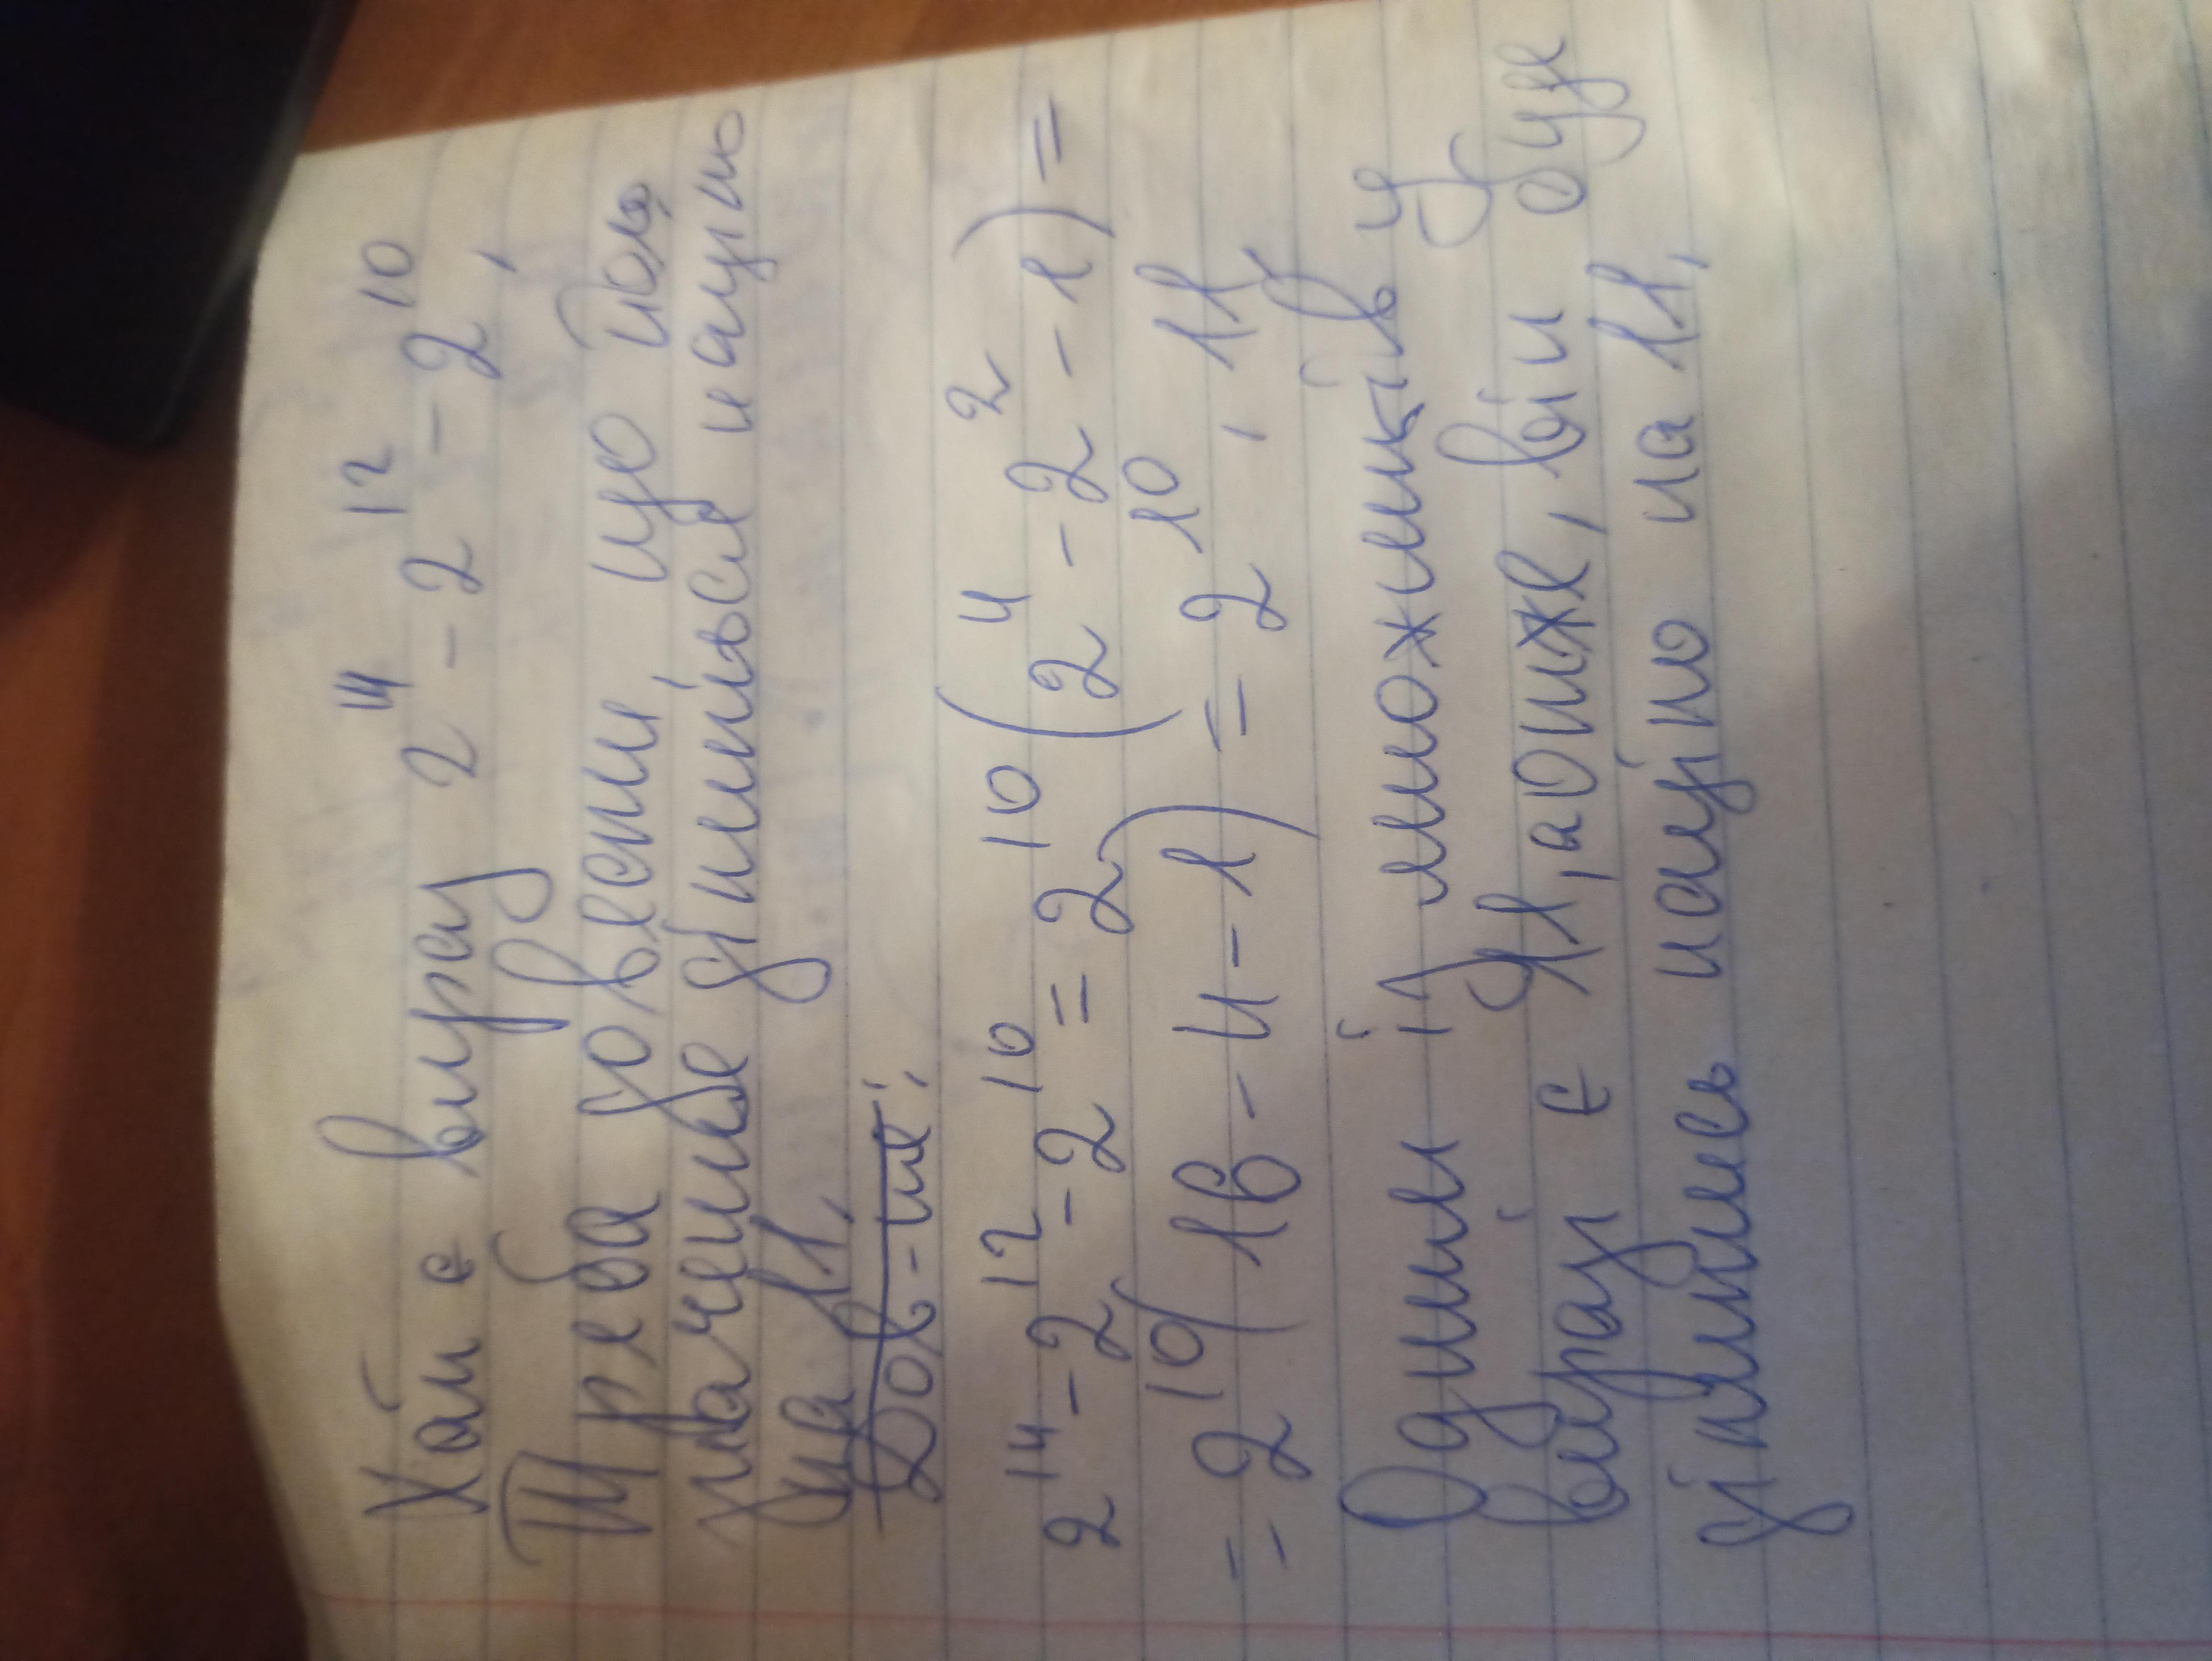 Хай є вираз 2¹⁴ - 2¹² - 2¹⁰.
Треба довести, що його
значення ділиться націло
на 11.
Дов-ня:
2¹⁴ - 2¹² - 2¹⁰ = 2¹⁰(2⁴ - 2² - 1) =
= 2¹⁰(16 - 4 - 1) = 2¹⁰ · 11
Одним із множників у
виразі є 11, а отже, він буде
ділитись націло на 11.